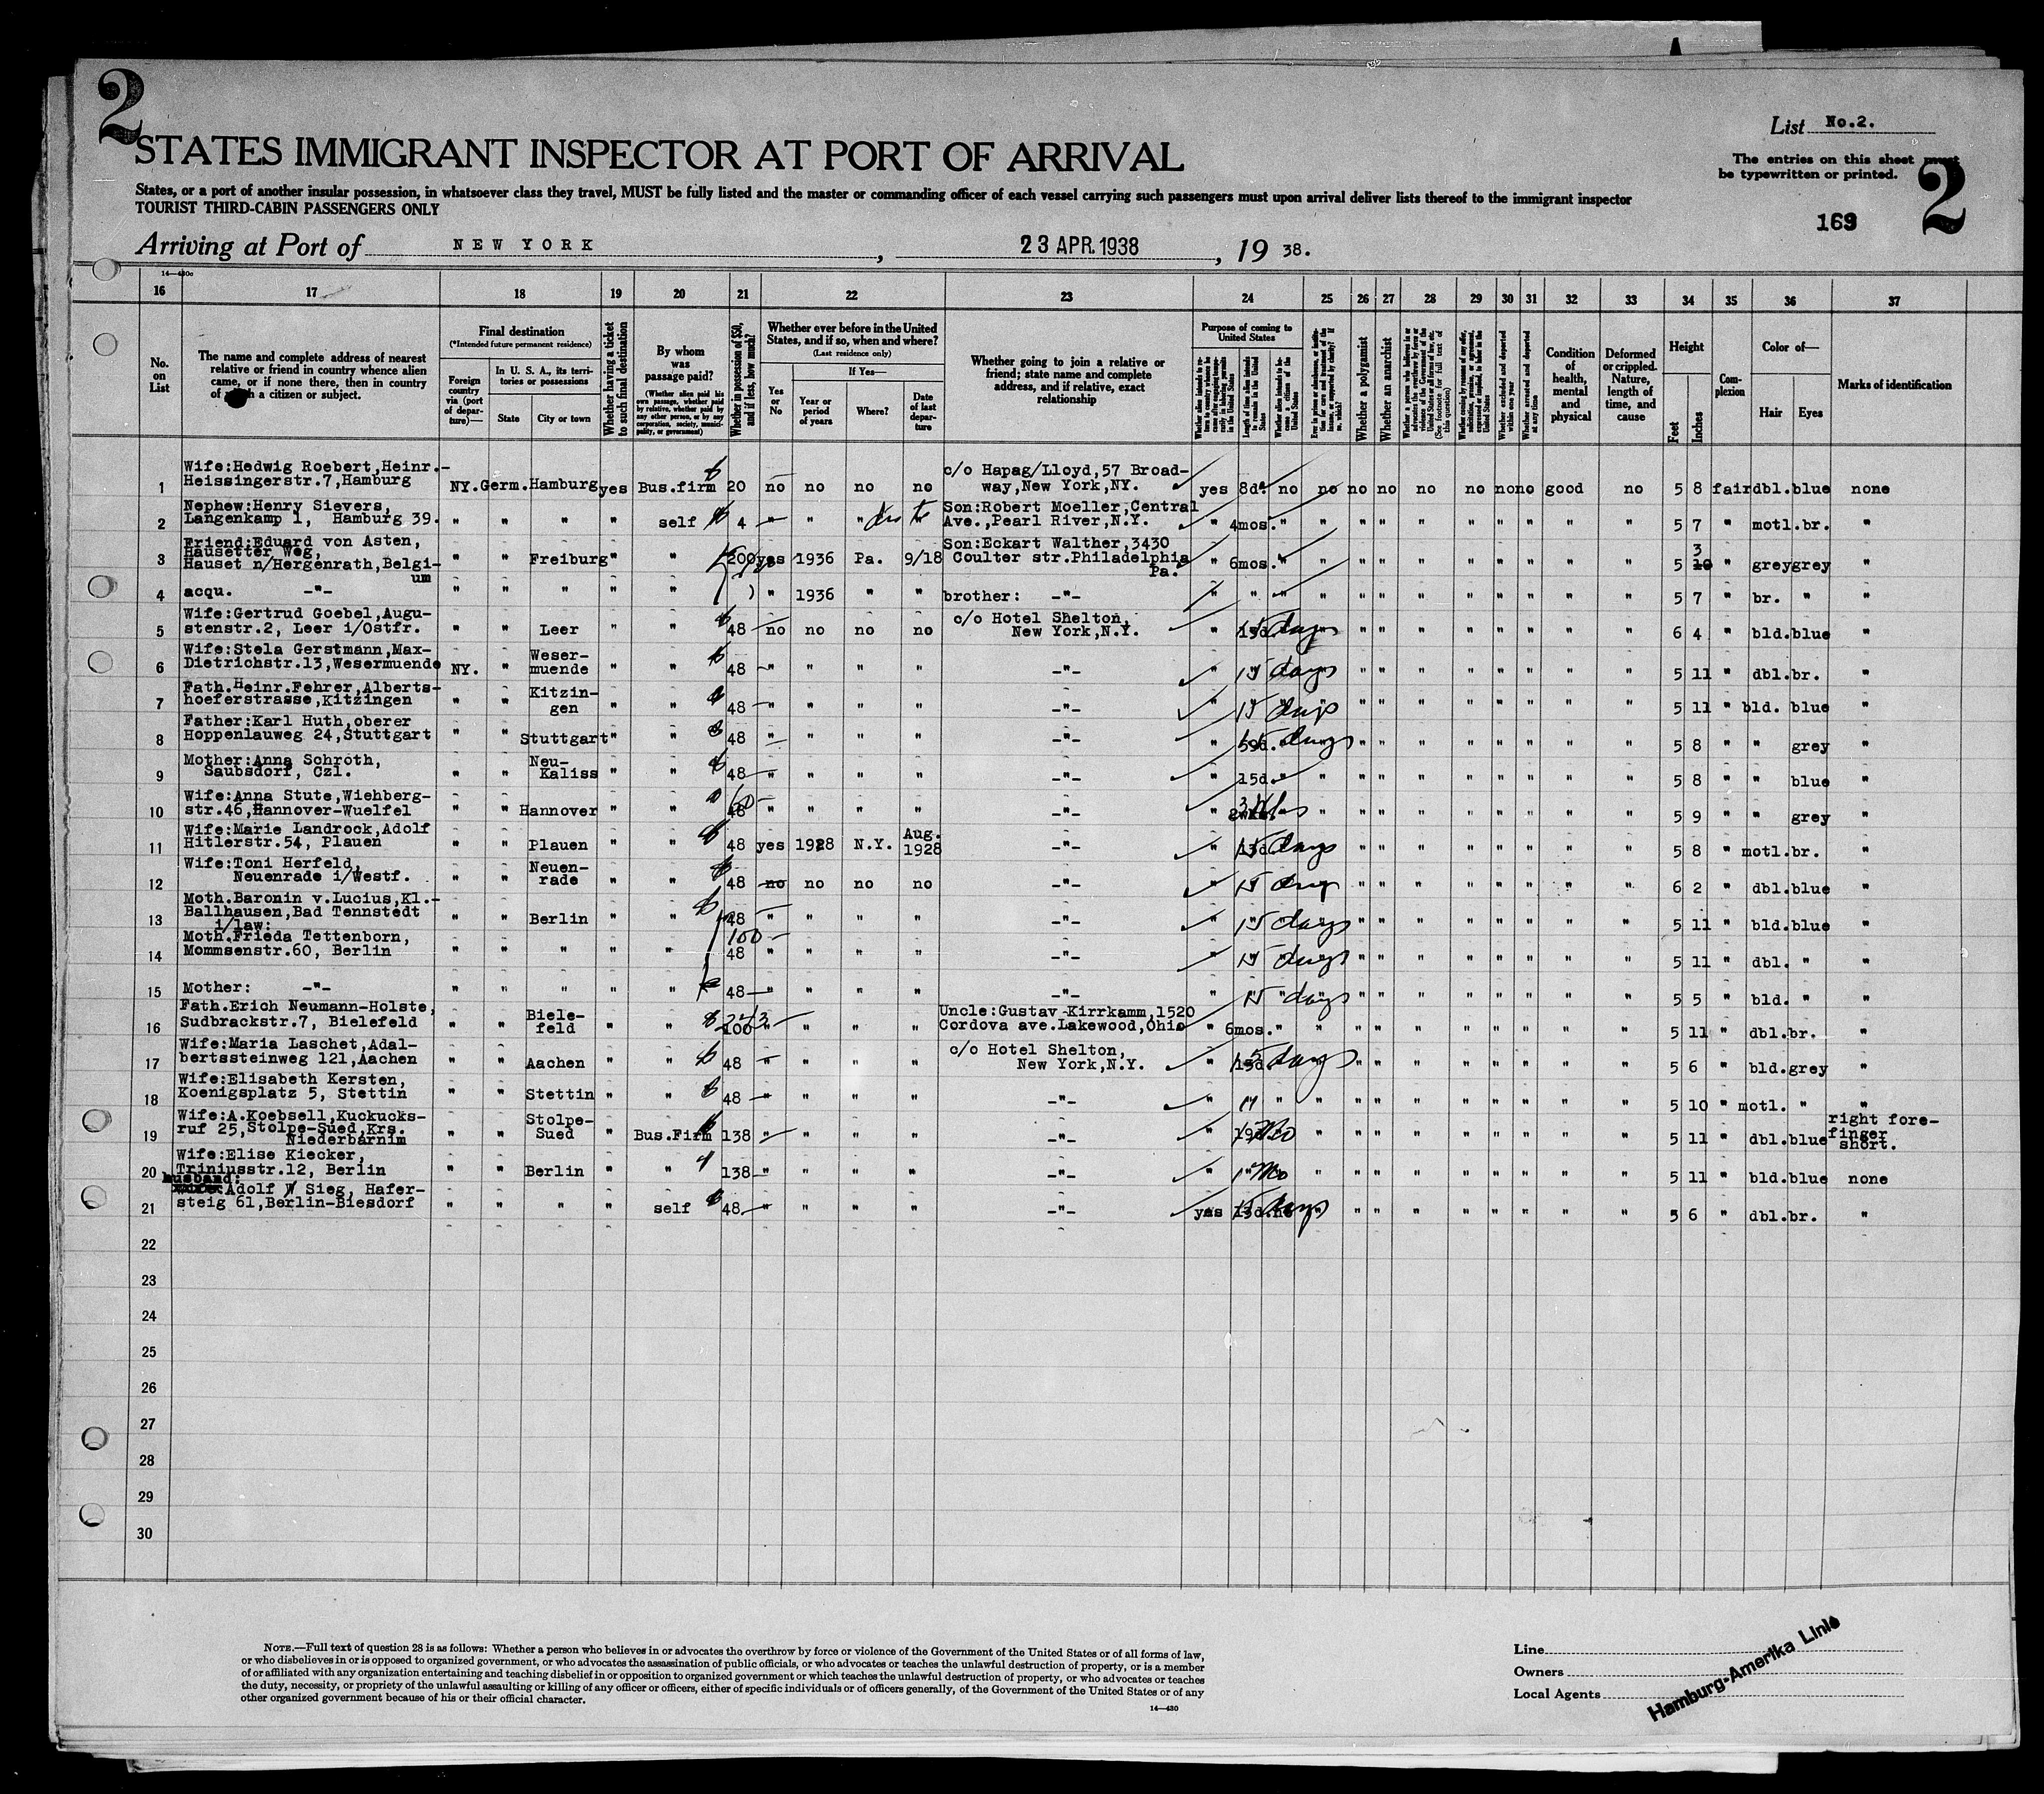 2
List No.2.
STATES IMMIGRANT INSPECTOR AT PORT OF ARRIVAL
The entries on this sheet must
be typewritten or printed.
2
States, or a port of another insular possession, in whatsoever class they travel, MUST be fully listed and the master or commanding officer of each vessel carrying such passengers must upon arrival deliver lists thereof to the immigrant inspector
TOURIST THIRD-CABIN PASSENGERS ONLY
169
Arriving at Port of NEW YORK, 23 APR. 1938, 19 38.
16 17 18 19 20 21 22 23 24 25 26 27 28 29 30 31 32 33 34 35 36 37
No. on List
The name and complete address of nearest
relative or friend in country whence alien
came, or if none there, then in country
of a citizen or subject.
Final destination
(*Intended future permanent residence)
Foreign country via (port of departure)—
In U. S. A., its territories or possessions
State
City or town
Whether having a ticket to such final destination
By whom was passage paid?
(Whether alien paid his own passage, whether paid by relative, whether paid by any other person, or by any corporation, society, municipality, or government)
Whether in possession of $50, and if less, how much?
Whether ever before in the United States, and if so, when and where?
(Last residence only)
Yes or No
If Yes—
Year or period of years
Where?
Date of last departure
Whether going to join a relative or
friend; state name and complete
address, and if relative, exact
relationship
Purpose of coming to United States
Length of time alien intends to remain in the United States
Whether a polygamist
Whether an anarchist
Condition of health, mental and physical
Deformed or crippled. Nature, length of time, and cause
Height
Feet
Inches
Complexion
Color of—
Hair
Eyes
Marks of identification
1 Wife:Hedwig Roebert,Heinr.-
Heissingerstr.7,Hamburg NY. Germ. Hamburg yes Bus.firm 20 no no no no c/o Hapag/Lloyd,57 Broad-
way,New York,NY. yes 8d. no no no no no no no no good no 5 8 fair dbl. blue none
2 Nephew:Henry Sievers,
Langenkamp 1, Hamburg 39. " " " " self 4 " " " Son:Robert Moeller,Central
Ave.,Pearl River,N.Y. " 4mos. " " " " " " " " " " 5 7 " motl. br. "
3 Friend:Eduard von Asten,
Hausetter Weg,
Hauset n/Hergenrath,Belgi-
um " " Freiburg " " 200 yes 1936 Pa. 9/18 Son:Eckart Walther,3430
Coulter str.Philadelphia
Pa. " 6mos. " " " " " " " " " " 5 3 " grey grey "
4 acqu. -"- " " " " " " 1936 " " brother: -"- " " " " " " " " " " " " 5 7 " br. " "
5 Wife:Gertrud Goebel,Augu-
stenstr.2, Leer i/Ostfr. " " Leer " " 48 no no no no c/o Hotel Shelton,
New York,N.Y. " 15 days " " " " " " " " " 6 4 " bld. blue "
6 Wife:Stela Gerstmann,Max-
Dietrichstr.13,Wesermuende NY. " Weser-
muende " " 48 " " " " -"- " 15 days " " " " " " " " " 5 11 " dbl. br. "
7 Fath.Heinr.Fehrer,Alberts-
hoeferstrasse,Kitzingen " " Kitzin-
gen " " 48 " " " " -"- " 15 days " " " " " " " " " 5 11 " bld. blue "
8 Father:Karl Huth,oberer
Hoppenlauweg 24,Stuttgart " " Stuttgart " " 48 " " " " -"- " days " " " " " " " " " 5 8 " " grey "
9 Mother:Anna Schroth,
Saubsdorf, Czl. " " Neu-
Kaliss " " 48 " " " " -"- " 15d. " " " " " " " " " " 5 8 " " blue "
10 Wife:Anna Stute,Wiehberg-
str.46,Hannover-Wuelfel " " Hannover " " 60 " " " " -"- " " " " " " " " " " " 5 9 " " grey "
11 Wife:Marie Landrock,Adolf
Hitlerstr.54, Plauen " " Plauen " " 48 yes 1928 N.Y. Aug.
1928 -"- " 15 days " " " " " " " " " 5 8 " motl. br. "
12 Wife:Toni Herfeld,
Neuenrade i/Westf. " " Neuen-
rade " " 48 no no no no -"- " 15 days " " " " " " " " " 6 2 " dbl. blue "
13 Moth.Baronin v.Lucius,Kl.-
Ballhausen,Bad Tennstedt " " Berlin " " 48 " " " " -"- " 15 days " " " " " " " " " 5 11 " bld. blue "
14 i/law:
Moth.Frieda Tettenborn,
Mommsenstr.60, Berlin " " " " " 100 48 " " " " -"- " 15 days " " " " " " " " " 5 11 " dbl. " "
15 Mother: -"- " " " " " 48 " " " " -"- " 15 days " " " " " " " " " 5 5 " bld. " "
16 Fath.Erich Neumann-Holste,
Sudbrackstr.7, Bielefeld " " Biele-
feld " " 100 " " " " Uncle:Gustav Kirrkamm,1520
Cordova ave.Lakewood,Ohio " 6mos. " " " " " " " " " " 5 11 " dbl. br. "
17 Wife:Maria Laschet,Adal-
bertssteinweg 121,Aachen " " Aachen " " 48 " " " " c/o Hotel Shelton,
New York,N.Y. " 15 days " " " " " " " " " 5 6 " bld. grey "
18 Wife:Elisabeth Kersten,
Koenigsplatz 5, Stettin " " Stettin " " 48 " " " " -"- " " " " " " " " " " " 5 10 " motl. " "
19 Wife:A.Koebsell,Kuckucks-
ruf 25,Stolpe-Sued,Krs.
Niederbarnim " " Stolpe-
Sued " Bus.Firm 138 " " " " -"- " Mo " " " " " " " " " " 5 11 " dbl. blue right fore-
finger
short.
20 Wife:Elise Kiecker,
Triniusstr.12, Berlin " " Berlin " " 138 " " " " -"- " 1 Mo " " " " " " " " " " 5 11 " bld. blue none
21 husband:
Adolf Sieg, Hafer-
steig 61,Berlin-Biesdorf " " " " self 48 " " " " -"- yes 15 days " " " " " " " " " 5 6 " dbl. br. "
22
23
24
25
26
27
28
29
30
NOTE.—Full text of question 28 is as follows: Whether a person who believes in or advocates the overthrow by force or violence of the Government of the United States or of all forms of law,
or who disbelieves in or is opposed to organized government, or who advocates the assassination of public officials, or who advocates or teaches the unlawful destruction of property, or is a member
of or affiliated with any organization entertaining and teaching disbelief in or opposition to organized government or which teaches the unlawful destruction of property, or who advocates or teaches
the duty, necessity, or propriety of the unlawful assaulting or killing of any officer or officers, either of specific individuals or of officers generally, of the Government of the United States or of any
other organized government because of his or their official character.
14—430
Line
Owners
Local Agents
Hamburg-Amerika Linie